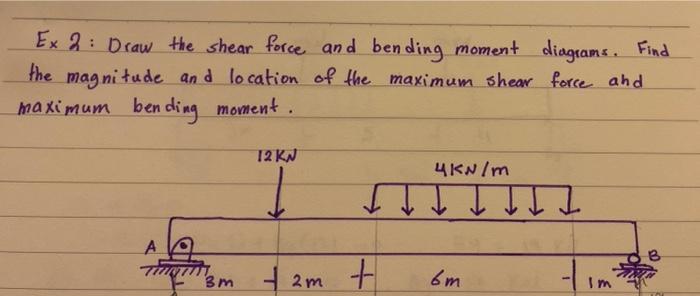 Ex 2 : Draw the shear force and bending moment diagrams. Find
the magnitude and location of the maximum shear force and
maximum bending moment.
12 KN
4 KN/m
A
B
3m 2m 6m 1m